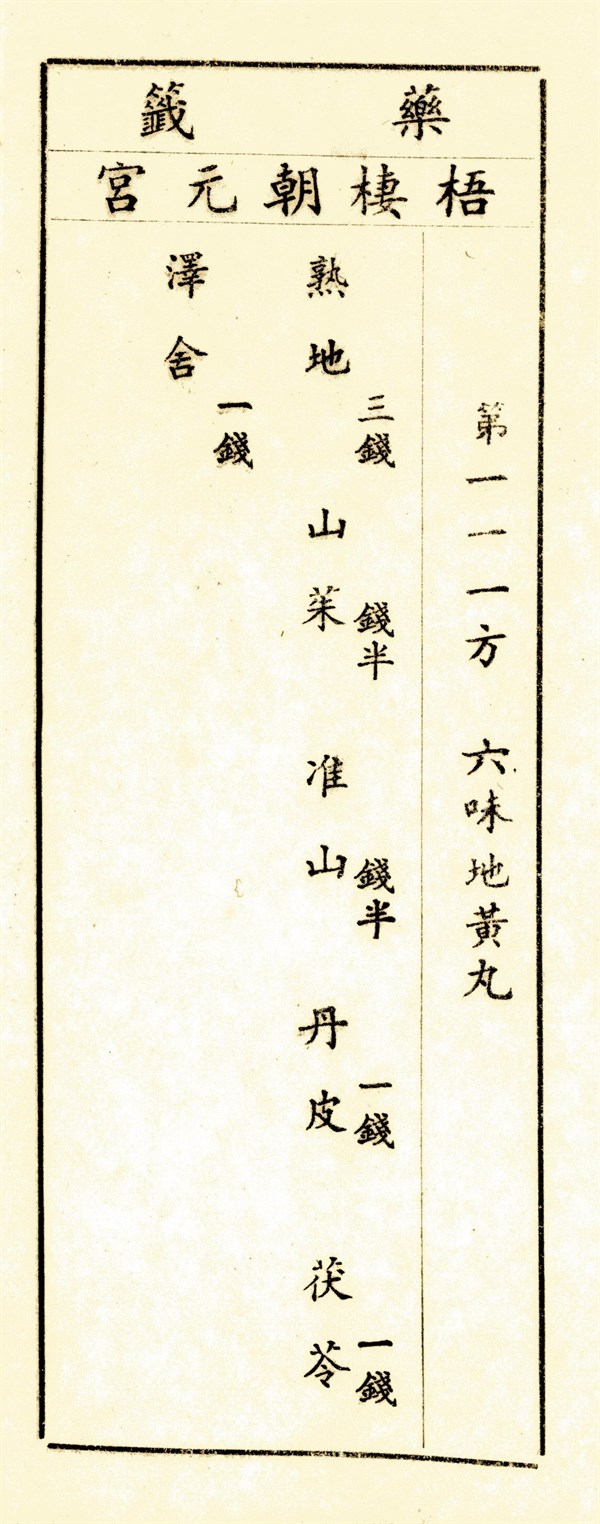 藥籤
梧棲朝元宮
第一一一方 六味地黃丸
熟地 三錢 山茱 錢半 准山 錢半 丹皮 一錢 茯苓 一錢
澤舍 一錢